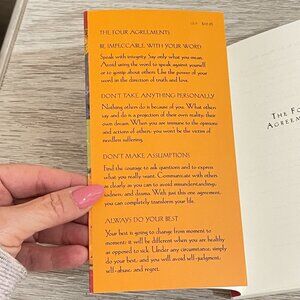 THE FOUR AGREEMENTS
BE IMPECCABLE WITH YOUR WORD
Speak with integrity. Say only what you mean.
Avoid using the word to speak against yourself
or to gossip about others. Use the power of your
word in the direction of truth and love.
DON'T TAKE ANYTHING PERSONALLY
Nothing others do is because of you. What others
say and do is a projection of their own reality, their
own dream. When you are immune to the opinions
and actions of others, you won't be the victim of
needless suffering.
DON'T MAKE ASSUMPTIONS
Find the courage to ask questions and to express
what you really want. Communicate with others
as clearly as you can to avoid misunderstandings,
sadness, and drama. With just this one agreement,
you can completely transform your life.
ALWAYS DO YOUR BEST
Your best is going to change from moment to
moment; it will be different when you are healthy
as opposed to sick. Under any circumstance, simply
do your best, and you will avoid self-judgment,
self-abuse, and regret.
THE FO
AGREEM